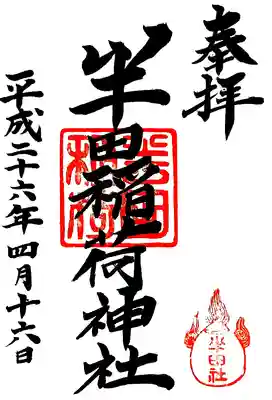 奉拝
半田稲荷神社
平成二十六年四月十六日
半田
稲荷
半田社